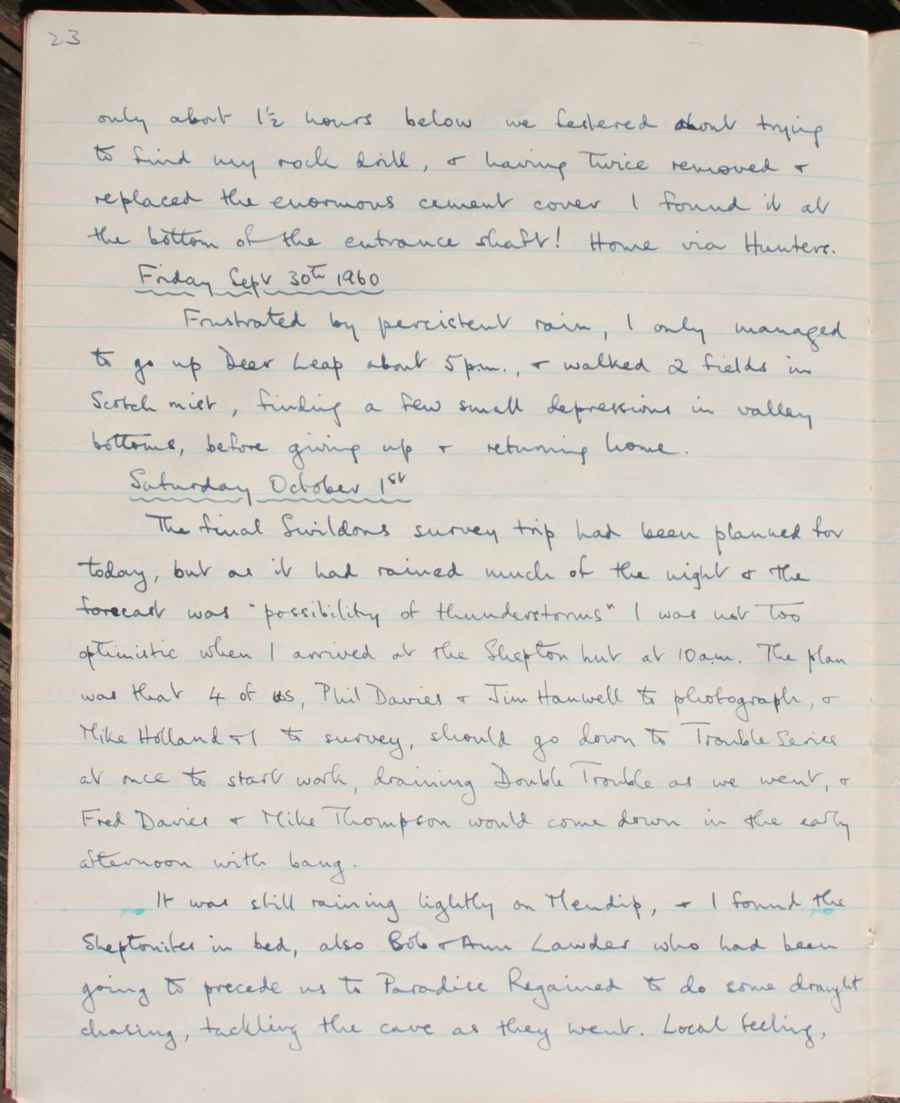 23
only about 1½ hours below we festered about trying
to find my rock drill, & having twice removed &
replaced the enormous cement cover I found it at
the bottom of the entrance shaft! Home via Hunters.
Friday Sept 30th 1960
Frustrated by percistent rain, I only managed
to go up Deer Leap about 5 p.m., & walked 2 fields in
Scotch mist, finding a few small depressions in valley
bottoms, before giving up & returning home.
Saturday October 1st
The final Swildons survey trip had been planned for
today, but as it had rained much of the night & the
forecast was "possibility of thunderstorms" I was not too
optimistic when I arrived at the Shepton hut at 10 a.m. The plan
was that 4 of us, Phil Davies & Jim Hanwell to photograph, &
Mike Holland & I to survey, should go down to Trouble Series
at once to start work, draining Double Trouble as we went, &
Fred Davies & Mike Thompson would come down in the early
afternoon with bang.
It was still raining lightly on Mendip, & I found the
Sheptonites in bed, also Bob & Ann Lawder who had been
going to precede us to Paradise Regained to do some draught
chasing, tackling the cave as they went. Local feeling,